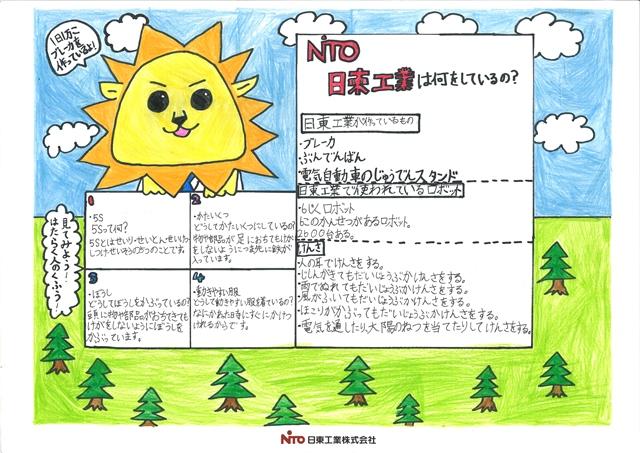 1日1万こ
ブレーカを
作っているよ!
NITO
日東工業は何をしているの?
日東工業が作っているもの
・ブレーカ
・ぶんでんばん
・電気自動車のじゅうでんスタンド
日東工業で使われているロボット
・6じくロボット
6このかんせつがあるロボット。
2600台ある。
けんさ
・人の耳でけんさをする。
・じしんがきてもだいじょうぶかけんさをする。
・雨でぬれてもだいじょうぶかけんさをする。
・風がふいてもだいじょうぶかけんさをする。
・ほこりがかぶってもだいじょうぶかけんさをする。
・電気を通したり、太陽のねつを当てたりしてけんさをする。
見てみよう!
はたらく人のくふう!
1
・5S
5Sって何?
5Sとはせいり・せいとん・せいけつ
しつけ・せいそうの5つのことです。
2
・かたいくつ
どうしてかたいくつにしているの?
物や部品が足におちてもけが
をしないようにつま先に鉄が入
っています。
3
・ぼうし
どうしてぼうしをかぶっている?
頭に物や部品がおちてきても
けがをしないようにぼうしを
かぶっています。
4
・動きやすい服
どうして動きやすい服を着ているの?
なにかあった時にすぐにかけつ
けれるからです。
NITO 日東工業株式会社